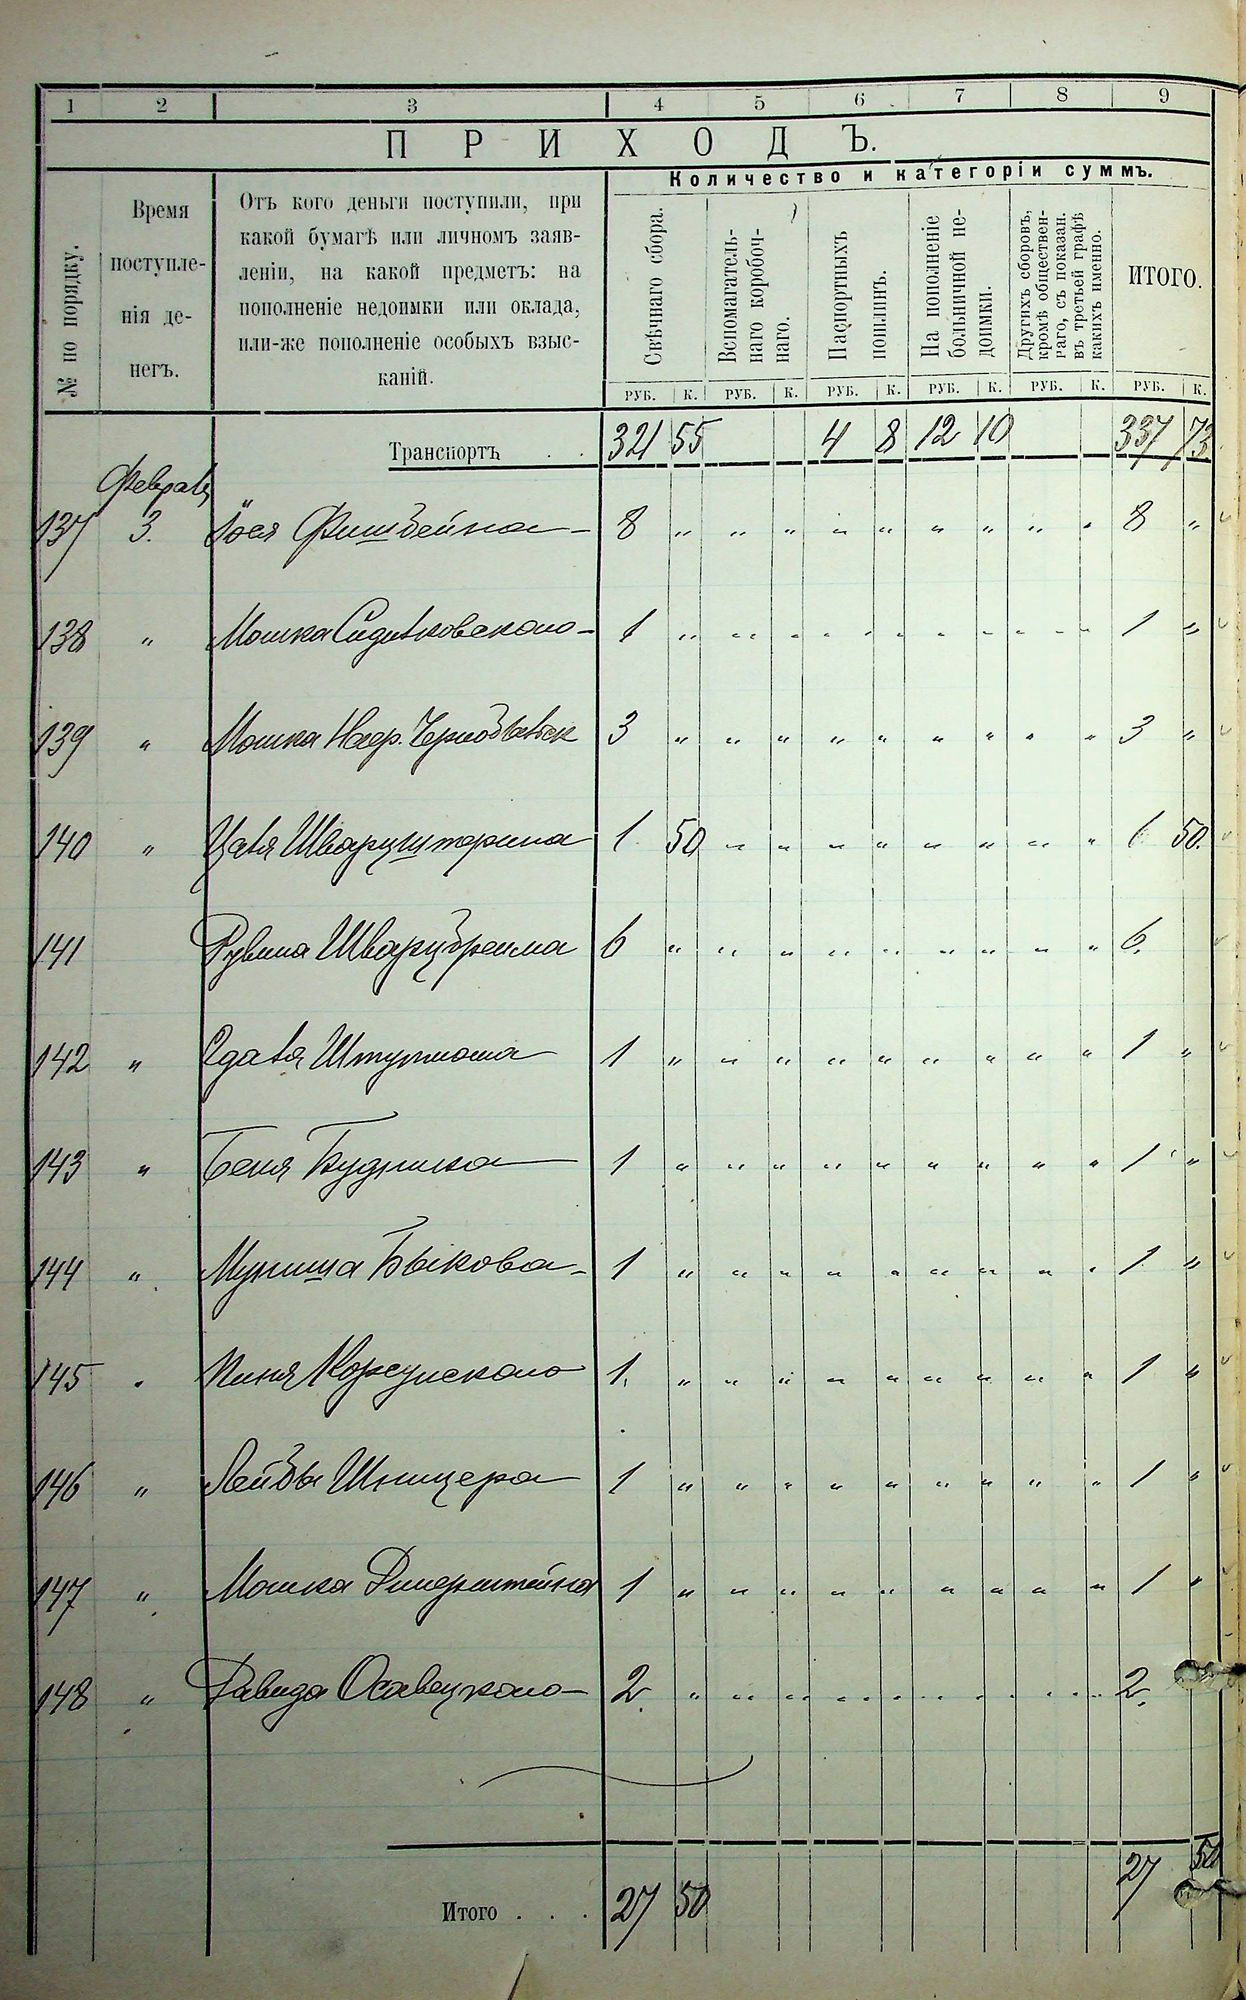 1 2 3 4 5 6 7 8 9
ПРИХОДЪ.
№ по порядку.
Время
поступле-
нія де-
негъ.
Отъ кого деньги поступили, при
какой бумагѣ или личномъ заяв-
леніи, на какой предметъ: на
пополненіе недоимки или оклада,
или-же пополненіе особыхъ взыс-
каній.
Количество и категоріи суммъ.
Свѣчнаго сбора.
Вспомагатель-
наго коробоч-
наго.
Паспортныхъ
пошлинъ.
На пополненіе
больничной не-
доимки.
Другихъ сборовъ,
кромѣ обществен-
наго, съ показан.
въ третьей графѣ
какихъ именно.
ИТОГО.
РУБ. К. РУБ. К. РУБ. К. РУБ. К. РУБ. К. РУБ. К.
Транспортъ . . 321 55 4 8 12 10 337 73
Февраля
137 3. Іося Фишбейна 8 „ „ „ „ „ „ „ „ „ 8 „
138 „ Мошка 1 „ „ „ „ „ „ „ „ „ 1 „
139 „ Мошка 3 „ „ „ „ „ „ „ „ „ 3 „
140 „ Шварцштерна 1 50 „ „ „ „ „ „ „ „ 1 50.
141 Рувина Шварцбрейма 6 „ „ „ „ „ „ „ „ „ 6.
142 „ 1 „ „ „ „ „ „ „ „ „ 1 „
143 „ Беня Будника 1 „ „ „ „ „ „ „ „ „ 1 „
144 „ Быкова 1 „ „ „ „ „ „ „ „ „ 1 „
145 „ Пиня Корсунскаго 1. „ „ „ „ „ „ „ „ „ 1 „
146 „ Лейбы Шницера 1 „ „ „ „ „ „ „ „ „ 1 „
147 „ Мошка 1 „ „ „ „ „ „ „ „ „ 1 „
148 „ Давида Осовецкаго 2. „ „ „ „ „ „ „ „ „ 2.
Итого . . . 27 50 27 50